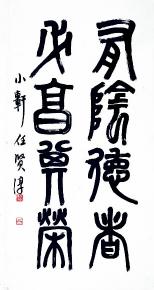 有陰德者
必享尊榮
小軒 任賢淳